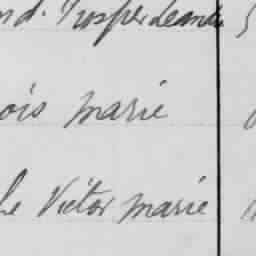 nd. Prosper Leandre
ois Marie
he Victor Marie